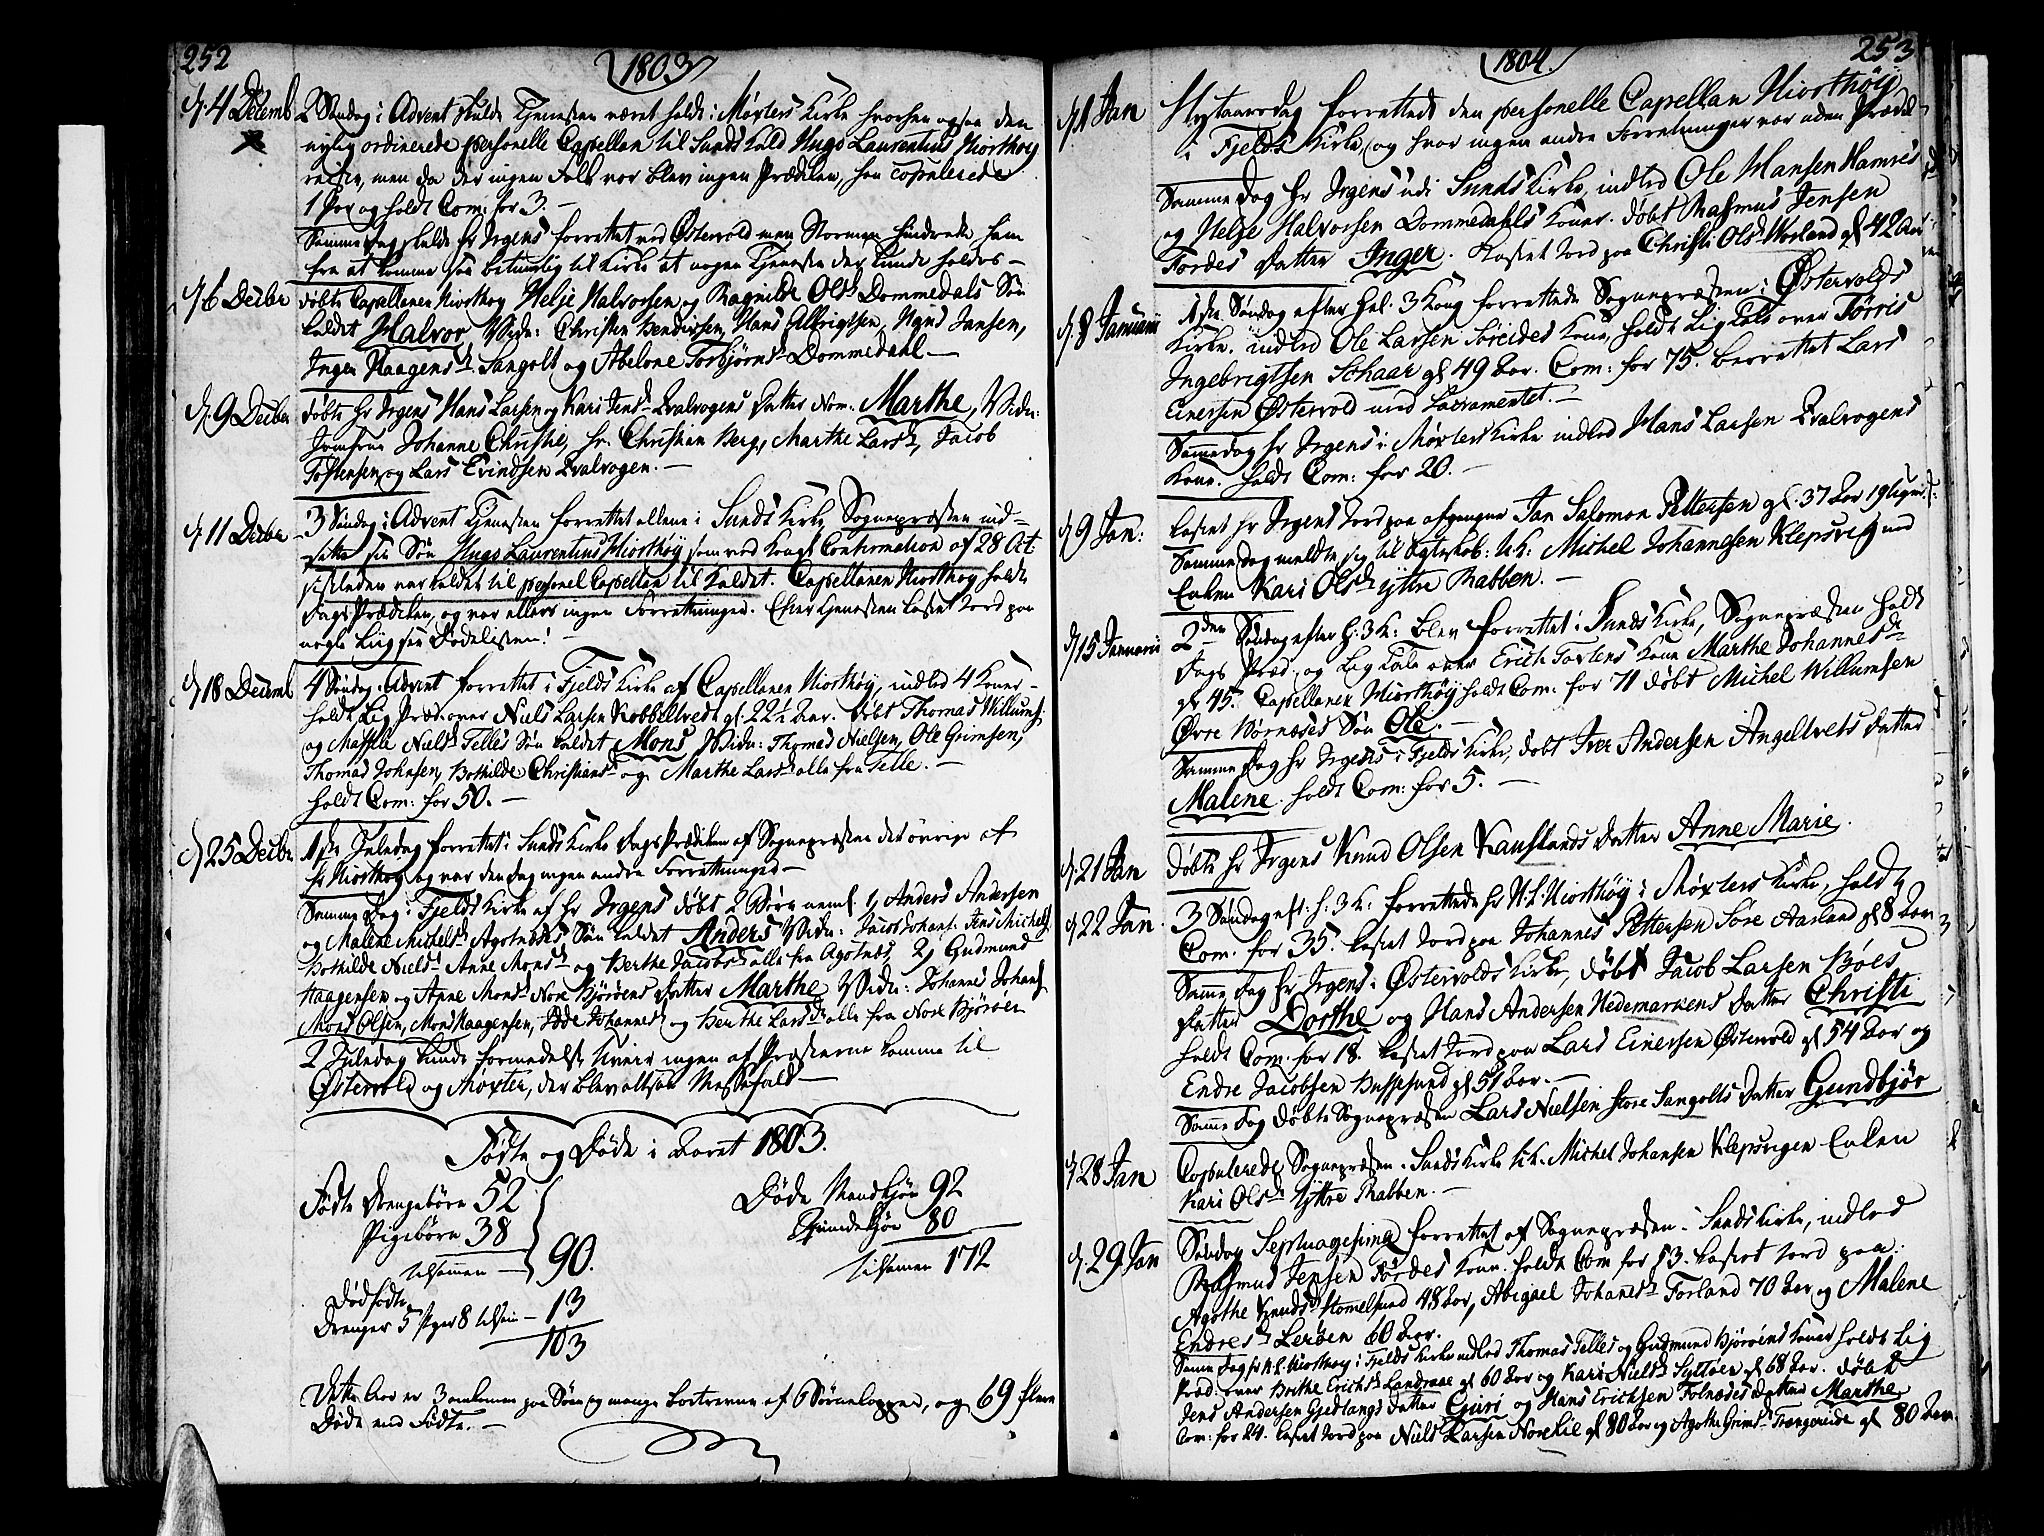 252
1803
d. 4 Decemb 2 Søndag i Advent skulde Tjenesten været holdt i Møxters Kirke hvorhen ogsaa den
nylig ordinerede personelle Capellan til Sunds Kald Hugo Laurentius Hiorthøy
reiste, men da der ingen Folk var blev ingen Prædiken, han copulerede
1 Par og holdt Com: for 3. —
Samme Dag skulde hr Irgens forrettet ved Østervold men Stormen hindrede ham
fra at komme saa betimelig til Kirke at nogen Tjeneste der kunde holdes —
d. 6 Decbr døbte Capellanen Hiorthøy Helje Halvorsen og Ragnilde Olsd. Dommedals Søn
kaldet Halvor. Vidn: Christen Hendricsen, Hans Albrigtsen, Hans Jansen,
Inger Haagensd. Sangolt og Abelone Torbjørnsd. Dommedahl —
d. 9 Decbr døbte hr Irgens Hans Larsen og Kari Jensd. Qvalvogens Datter Nom: Marthe, Vidn:
Jomfrue Johanne Christie, hr. Christian Berg, Marthe Larsd., Jacob
Tostensen og Lars Evindsen Qvalvogen. —
d. 11 Decbr 3 Søndag i Advent Tjenesten forrettet allene i Sunds Kirke, Sognepræsten ind-
satte sin Søn Hugo Laurentius Hiorthøy som ved Kongl Confirmation af 28 Oct.
sidstleden var kaldet til personel Capellan til Kaldet. Capellanen Hiorthøy holdt
Dags Prædiken, og var ellers ingen Forretninger. Efter Tjenesten kastet Jord paa
nogle Liig see Dødelisten! —
d. 18 Decemb 4 Søndag i Advent forrettet i Fjelds Kirke af Capellanen Hiorthøy, indled 4 Koner —
holdt Lig Præd: over Niels Larsen Kobbeltvedt gl. 22½ Aar. døbt Thomas Willums.
og Massele Nielsd. Telles Søn kaldet Mons Vidn: Thomas Nielsen, Ole Grimsen,
Thomas Johnsen, Bothilde Christiansd. og Marthe Larsd. alle fra Telle. —
holdt Com: for 50. —
d. 25 Decbr 1ste Juledag forrettet i Sunds Kirke Dags Prædiken af Sognepræsten det øvrige af
hr Hiorthøy og var den Dag ingen andre Forretninger —
Samme Dag i Fjelds Kirke af hr Irgens døbt 2 Børn neml. 1) Anders Andersen
og Malene Michelsd. Agotnæses Søn kaldet Anders Vidn: Jacob Johans. Jens Michels.
Bothilde Nielsd. Anne Monsd. og Berthe Jacobsd. alle fra Agotnæs, 2) Gudmund
Haagensen og Anne Monsd. Nore Bjørøens Datter Marthe Vidn: Johannes Johans.
Mons Olsen, Mons Haagensen, Johannesd. og Berthe Larsd. alle fra Nore Bjørøen
2 Juledag kunde formedelst Uveir ingen af Præsterne komme til
Østervold og Møxter, der blev altsaa Messefald —
Fødte og Døde i Aaret 1803.
Fødte Drengebørn 52
Pigebørn 38
tilsammen — 90.
Dødfødte
Drenger 5 Piger 8 tilsam — 13
103
Døde Mandkjøn 92
Qvindekjøn 80
tilsamen 172
Dette Aar er 3 omkomen paa Søen og mange bortrevne af Børnekopper, og 69 flere
Døde end Fødte. —
1804.
253
d. 1 Jan Nytaarsdag forrettede den personelle Capellan Hiorthøy
i Fjelds Kirke, og hvor ingen andre Forretninger var uden Præd
Samme Dag hr Irgens udi Sunds Kirke, indled Ole Hansen Hamres
og Helje Halvorsen Dommedahls Koner. døbt Rasmus Jensen
Tordes Datter Inger. kastet Jord paa Christi Olsd. Worland gl 42 Aar
d. 8 Januarii 1ste Søndag efter hel. 3 Kong forrettede Sognepræsten i Østervolds
Kirke. indled Ole Larsen Søreides Kone, holdt Lig Tale over Tørris
Ingebrigtsen Schaar gl 49 Aar. Com: for 75. berettet Lars
Einersen Østervold med Sacramentet. —
Samme dag hr Irgens i Møxters Kirke indled Hans Larsen Qvalvogens
Kone. holdt Com: for 20. —
d. 9 Jan: kastet hr Irgens Jord paa afgangne Jan Salomon Pettersen gl. 37 Aar
Samme Dag meldte sig til Egteskab: Uk: Michel Johannesen Klepsvig med
Enken Kari Olsd. yttre Rabben. —
d. 15 Januarii 2den Søndag efter h: 3 K: blev forrettet i Sunds Kirke, Sognepræsten holdt
Dags Præd: og Lig Tale over Erich Toxlens Kone Marthe Johannesd.
gl 45. Capellanen Hiorthøy holdt Com: for 71 døbt Michel Willumsen
Øvre Børnæses Søn Ole. —
Samme Dag hr Irgens i Fjelds Kirke, døbt Iver Andersen Angeltvets Datter
Malene. holdt Com: for 5. —
d. 21 Jan døbte hr Irgens Knud Olsen Kauslands Datter Anne Marie.
d. 22 Jan 3 Søndag eft: h: 3 K: forrettede hr H. L. Hiorthøy i Møxters Kirke, holdt
Com: for 35. kastet Jord paa Johannes Pettersen Søre Aarland gl 8 Aar
Samme Dag hr Irgens i Østervolds Kirke, døbt Jacob Larsen Bøes
Datter Dorthe og Hans Andersen Hedemarkens Datter Christi
holdt Com: for 18. kastet Jord paa Lars Einersen Østervold gl 54 Aar og
Endre Jacobsen Hufsesund gl 51 Aar. —
Samme Dag døbte Sognepræsten Lars Nielsen store Sangolts Datter Gundbjør
d. 28 Jan Copulerede Sognepræsten i Sunds Kirke Uk. Michel Johansen Klepsvigen Enken
Kari Olsd. yttre Rabben. —
d. 29 Jan Søndag Septuagesima forrettet af Sognepræsten i Sunds Kirke, indled
Rasmus Jensen Tordes Kone. holdt Com for 53. kastet Jord paa:
Agothe Knudsd. Homelsund 48 Aar, Abigael Johansd. Forland 70 Aar og Malene
Endresd. Lerøen 60 Aar.
Samme Dag hr H. L. Hiorthøy i Fjelds Kirke indled Thomas Telles og Gudmund Bjørøens Koner holdt Lig
Præd: over Brithe Erichsd. Landraae gl 60 Aar og Kari Nielsd. Syltøen gl 68 Aar. døbt
Jens Andersen Gjetlangs Datter Guri og Hans Erichsen Folnæses Datter Marthe
Com: for 24. kastet Jord paa Niels Larsen Norelie gl 80 Aar og Agothe Grimsd. Trengereide gl 80 Aar.